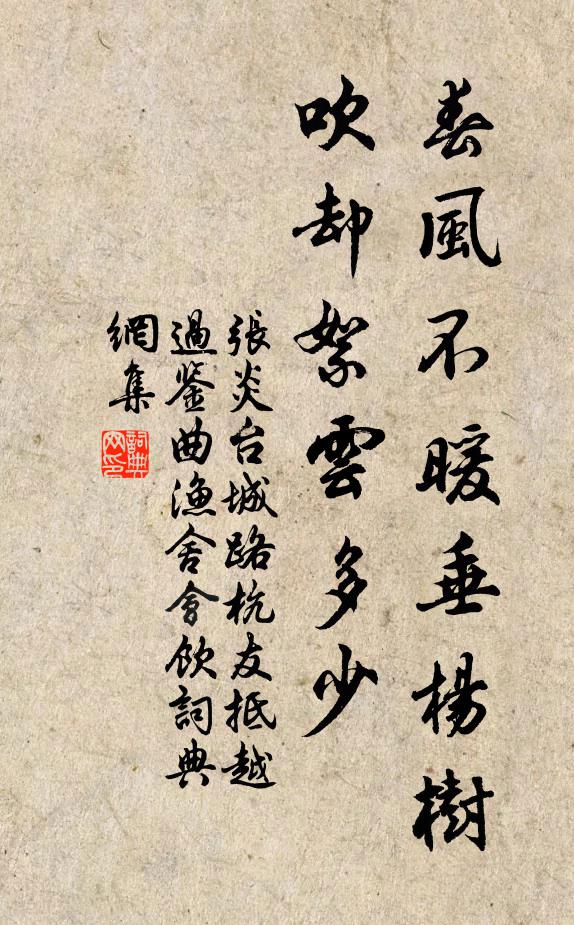 春風不暖垂楊樹
吹却絮雲多少
張炎台城路杭友抵越
過鉴曲漁舍會飲詞典
網集
詞典网印